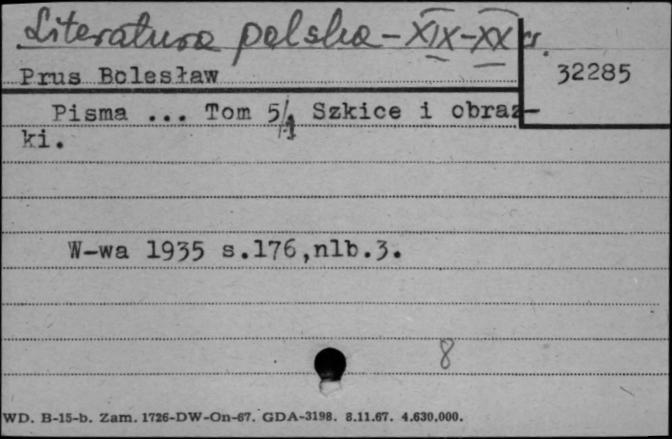 Literatura polska - XIX-XX
Prus Bolesław
32285
Pisma ... Tom 5/1 Szkice i obraz-
ki.
W-wa 1935 s.176,nlb.3.
8
WD. B-15-b. Zam. 1726-DW-On-67. GDA-3198. 8.11.67. 4.630,000.